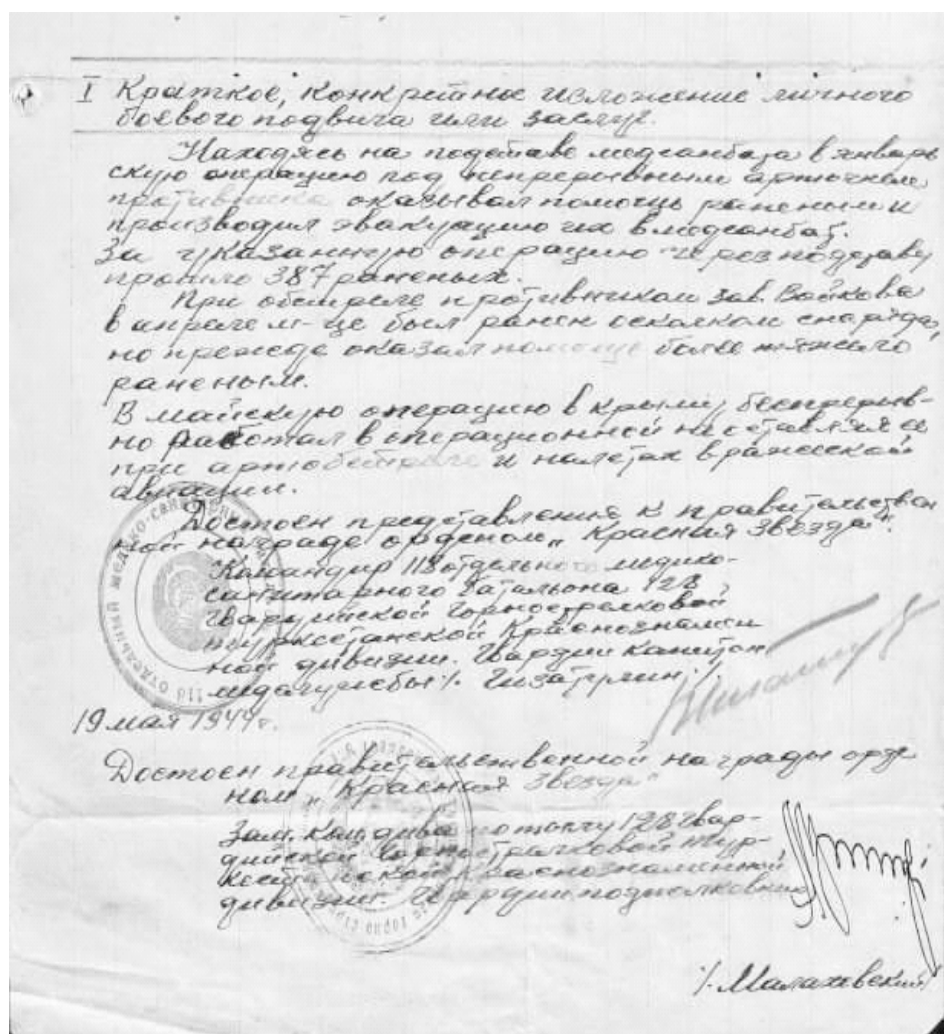 I Краткое, конкретное изложение личного
боевого подвига или заслуг.
Находясь на подставе медсанбата в январь
скую операцию под непрерывным артогнем
противника оказывал помощь раненым и
производил эвакуацию их в медсанбат.
За указанную операцию через подставу
прошло 387 раненых.
При обстреле противником зав. Войкова
в апреле м-це был ранен осколком снаряда,
но прежде оказал помощь более тяжело
раненым.
В майскую операцию в крыму, беспрерыв-
но работал в операционной не оставляя ее
при артобстреле и налетах вражеской
авиации.
Достоен представления к правительствен
ной награде орденом „Красная Звезда".
Командир 118 отдельного медико-
санитарного батальона 128
Гвардийской Горнострелковой
туркестанской Краснознамен
ной дивизии. Гвардии капитан
медслужбы /. Гизатулин /.
19 мая 1944г.
Достоен правительственной награды орде
ном „Красная Звезда"
Зам. ком. дива по тылу 128 Гвар-
дийской Горнострелковой Тур-
кестанской Краснознаменной
дивизии. Гвардии подполковник
/. Малаховский/